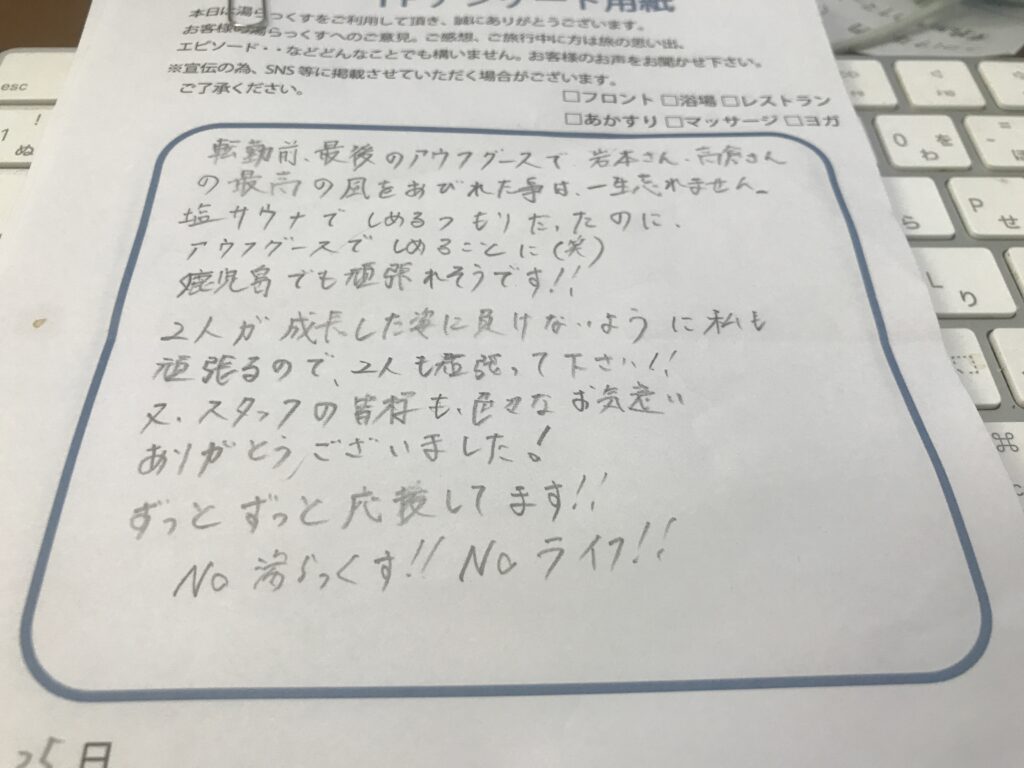 アンケート用紙
本日は湯らっくすをご利用して頂き、誠にありがとうございます。
お客様の湯らっくすへのご意見。ご感想、ご旅行中に方は旅の思い出、
エピソード・・などどんなことでも構いません。お客様のお声をお聞かせ下さい。
※宣伝の為、SNS等に掲載させていただく場合がございます。
ご了承ください。
□フロント □浴場 □レストラン
□あかすり □マッサージ □ヨガ
転勤前、最後のアウフグースで 岩本さん、高倉さん
の最高の風をあびれた事は、一生忘れません。
塩サウナで しめるつもりだったのに、
アウフグースで しめることに(笑)
鹿児島でも頑張れそうです!!
2人が 成長した姿に負けないように私も
頑張るので、2人も頑張って下さい!!
又、スタッフの皆様も、色々なお気遣い
ありがとうございました!
ずっとずっと応援してます!!
No 湯らっくす!! No ライフ!!
25日
esc
1
!
ぬ
0
を
わ
-
=
ほ
P
せ
ら
L
り
⌘